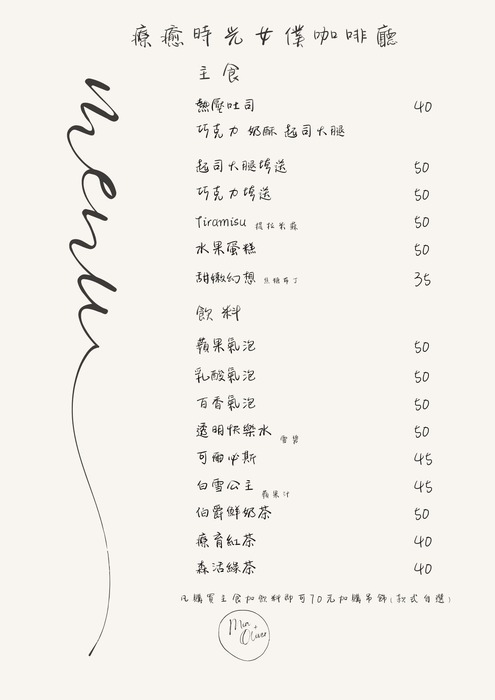 療癒時光女僕咖啡廳
menu
主食
熱壓吐司 40
巧克力 奶酥 起司火腿
起司火腿埃送 50
巧克力埃送 50
Tiramisu 提拉米蘇 50
水果蛋糕 50
甜嫩幻想 焦糖布丁 35
飲料
蘋果氣泡 50
乳酸氣泡 50
百香氣泡 50
透明快樂水 雪碧 50
可爾必斯 45
白雪公主 蘋果汁 45
伯爵鮮奶茶 50
療育紅茶 40
森活綠茶 40
凡購買主食加飲料即可70元加購吊飾(款式自選)
Min + Oliver